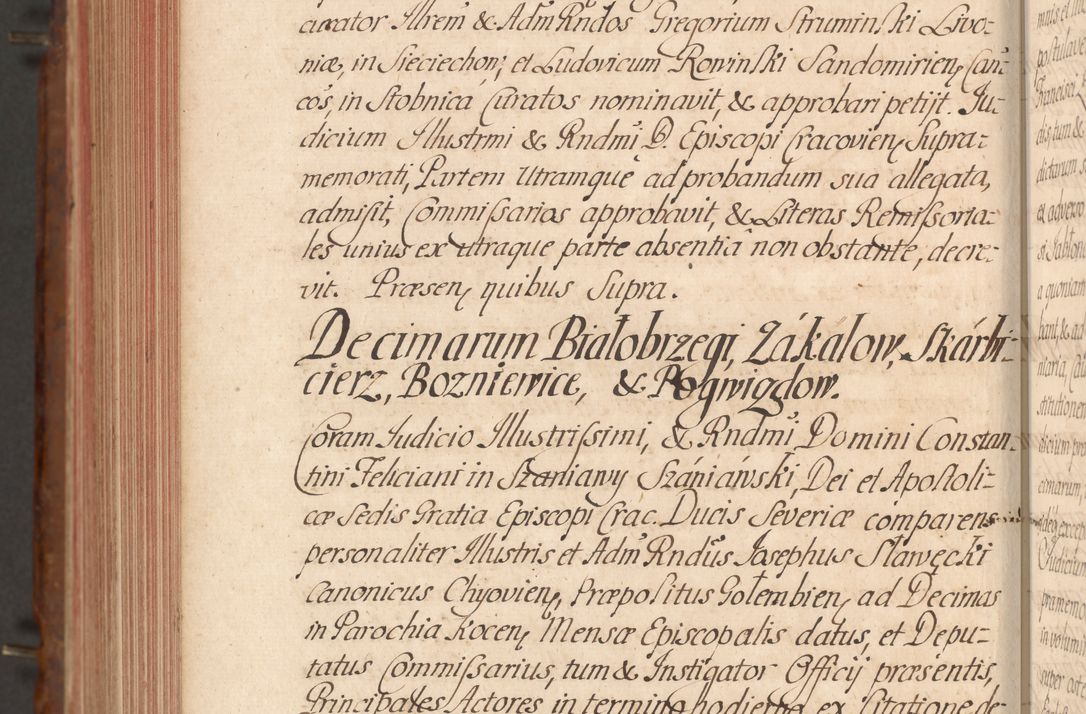 curator Illrem & Adm Rndos Gregorium Struminski Livo-
niæ, in Sieciechow, et Ludovicum Rowinski Sandomirien, Can-
cos, in Stobnica Curatos nominavit, & approbari petijt. Ju-
dicium Illustrmi & Rndmi D. Episcopi Cracovien, Supra-
memorati, Partem Utramque ad probandum sua allegata,
admisit, Commissarios approbavit, & Literas Remissoria-
les unius ex utraque parte absentia non obstante, decre-
vit. Præsen, quibus Supra.
Decimarum Białobrzegi, Zákalow, Skárbi-
cierz, Bozniewice, & Pogwigdow.
Coram Iudicio Illustrissimi, & Rndmi Domini Constan-
tini Feliciani in Szaniawy Szániáwski, Dei et Apostoli-
cæ Sedis Gratia Episcopi Crac. Ducis Severiæ comparens
personaliter Illustris et Adm Rndus Josephus Sławęcki
Canonicus Chyovien, Præpositus Gołembien, ad Decimas
in Parochia Kocen, Mensæ Episcopalis datus, et Depu-
tatus Commissarius, tum & Instigator Officij præsentis,
Principales Actores in termino hodierno ex Citatione de-